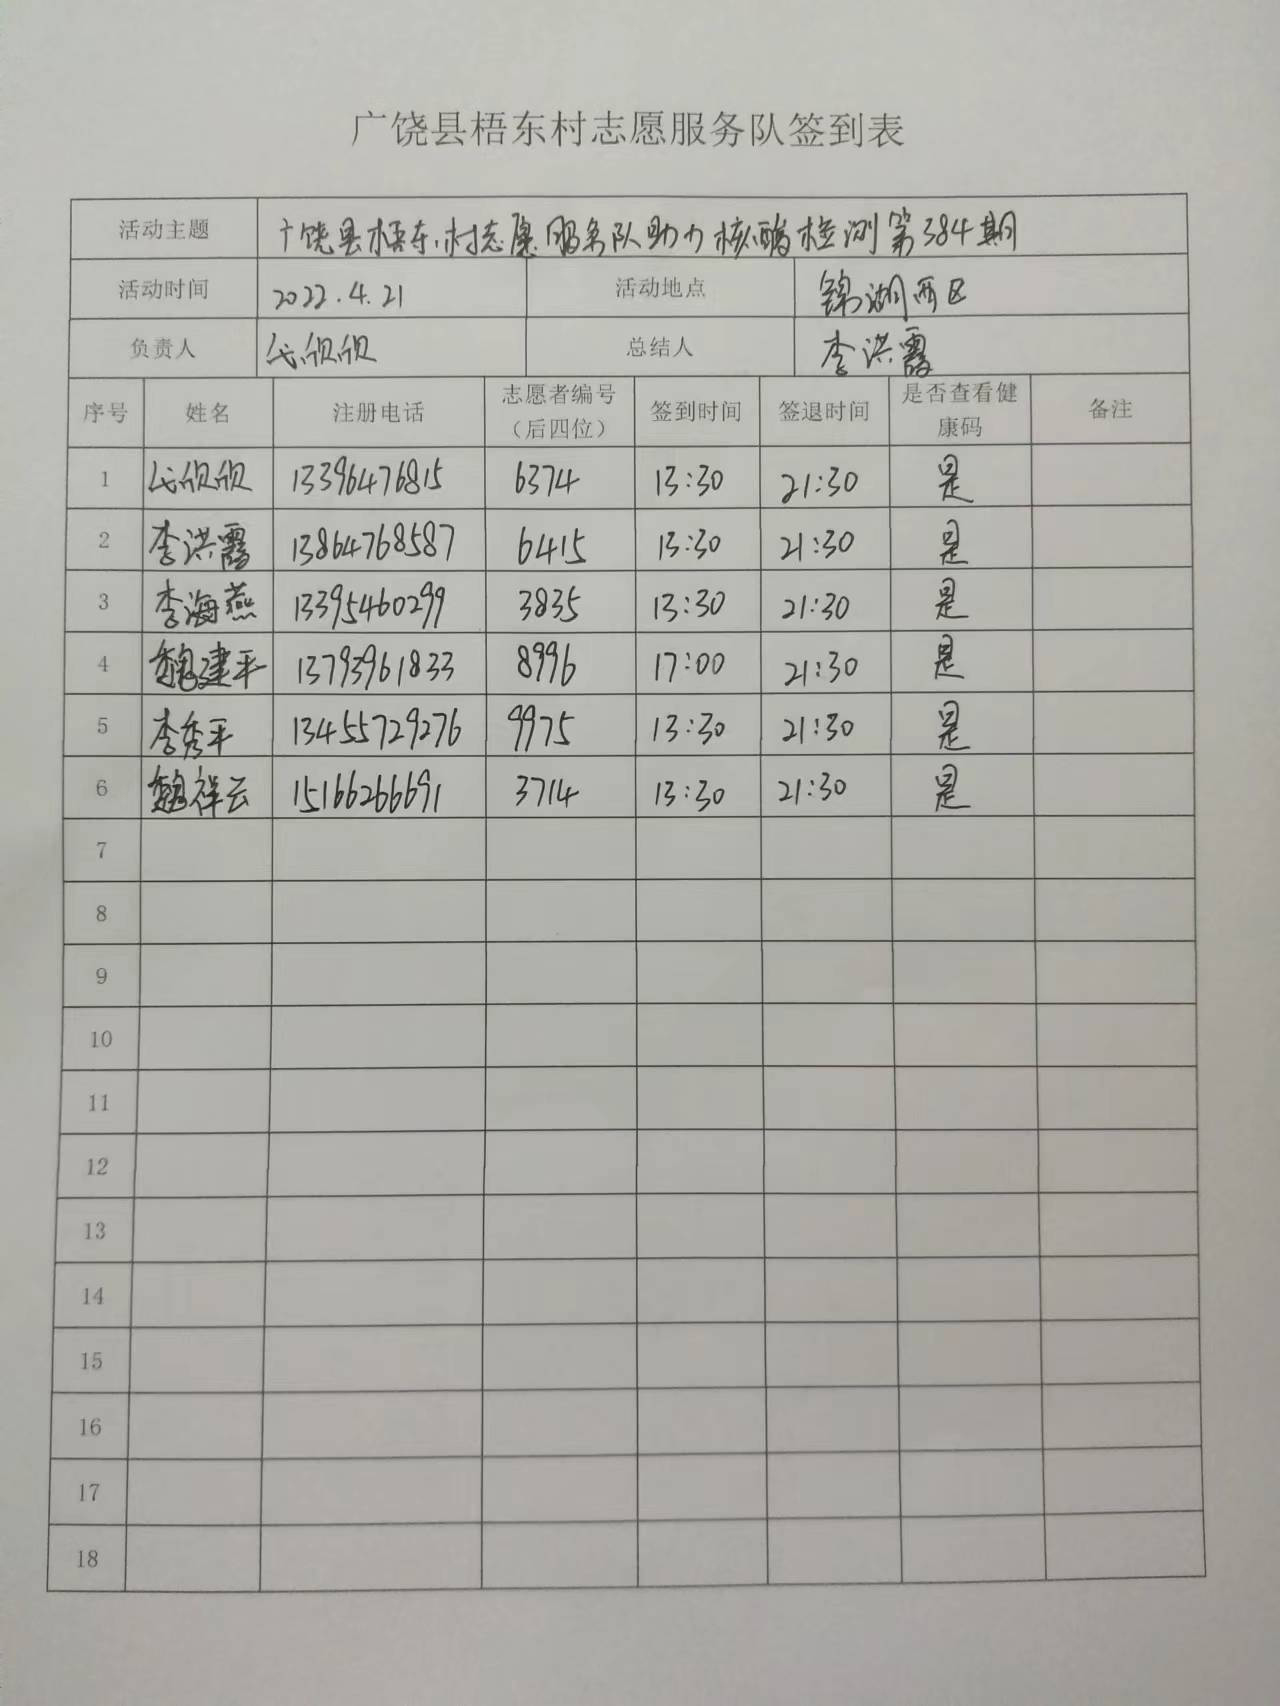 广饶县梧东村志愿服务队签到表
活动主题 广饶县梧东村志愿服务队助力核酸检测第384期
活动时间 2022.4.21 活动地点 锦湖西区
负责人 代欣欣 总结人 李洪霞
序号 姓名 注册电话 志愿者编号（后四位） 签到时间 签退时间 是否查看健康码 备注
1 代欣欣 13396476815 6374 13:30 21:30 是
2 李洪霞 13864768587 6415 13:30 21:30 是
3 李海燕 13395460299 3835 13:30 21:30 是
4 魏建平 13793961833 8996 17:00 21:30 是
5 李秀平 13455729276 9975 13:30 21:30 是
6 魏祥云 15166266691 3714 13:30 21:30 是
7
8
9
10
11
12
13
14
15
16
17
18